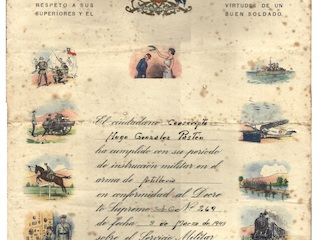 RESPETO A SUS
SUPERIORES Y EL
VIRTUDES DE UN
BUEN SOLDADO.
El ciudadano Conscripto
Hugo Gonzalez Pastén
ha cumplido con su período
de instrucción militar en el
arma de
en conformidad al Decre
to Supremo No 264
de fecha de Marzo de 194
sobre el Servicio Militar